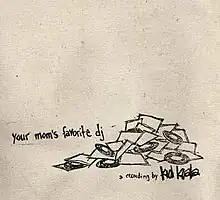 your mom's favorite dj
a recording by kid koala